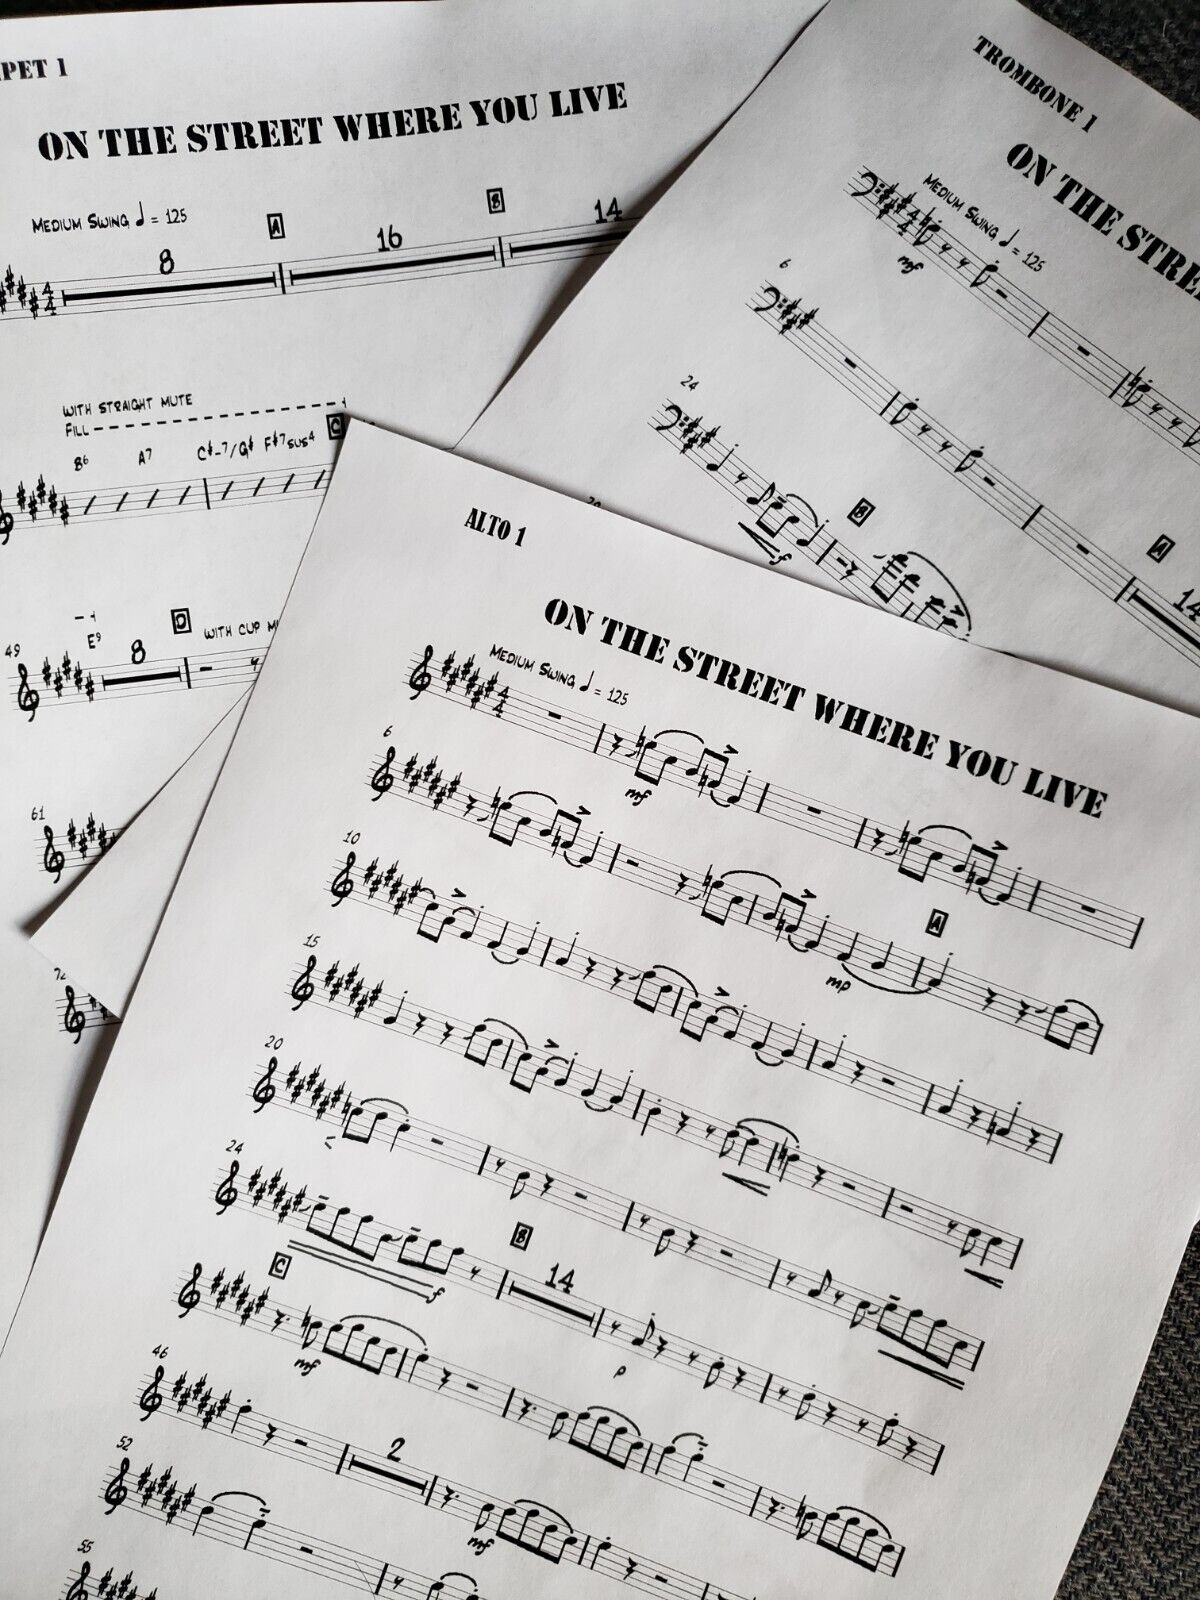 PET 1
ON THE STREET WHERE YOU LIVE
MEDIUM SWING ♩ = 125
8
A
16
B
14
WITH STRAIGHT MUTE
FILL
B6 A7 C#-7/G# F#7SUS4
C
49
E9
8
D
WITH CUP
61
TROMBONE 1
ON THE STRE
MEDIUM SWING ♩ = 125
mf
6
A
14
24
f
B
ALTO 1
ON THE STREET WHERE YOU LIVE
MEDIUM SWING ♩ = 125
mf
6
mp
A
10
15
20
24
f
B
14
p
C
mf
46
2
mf
52
55